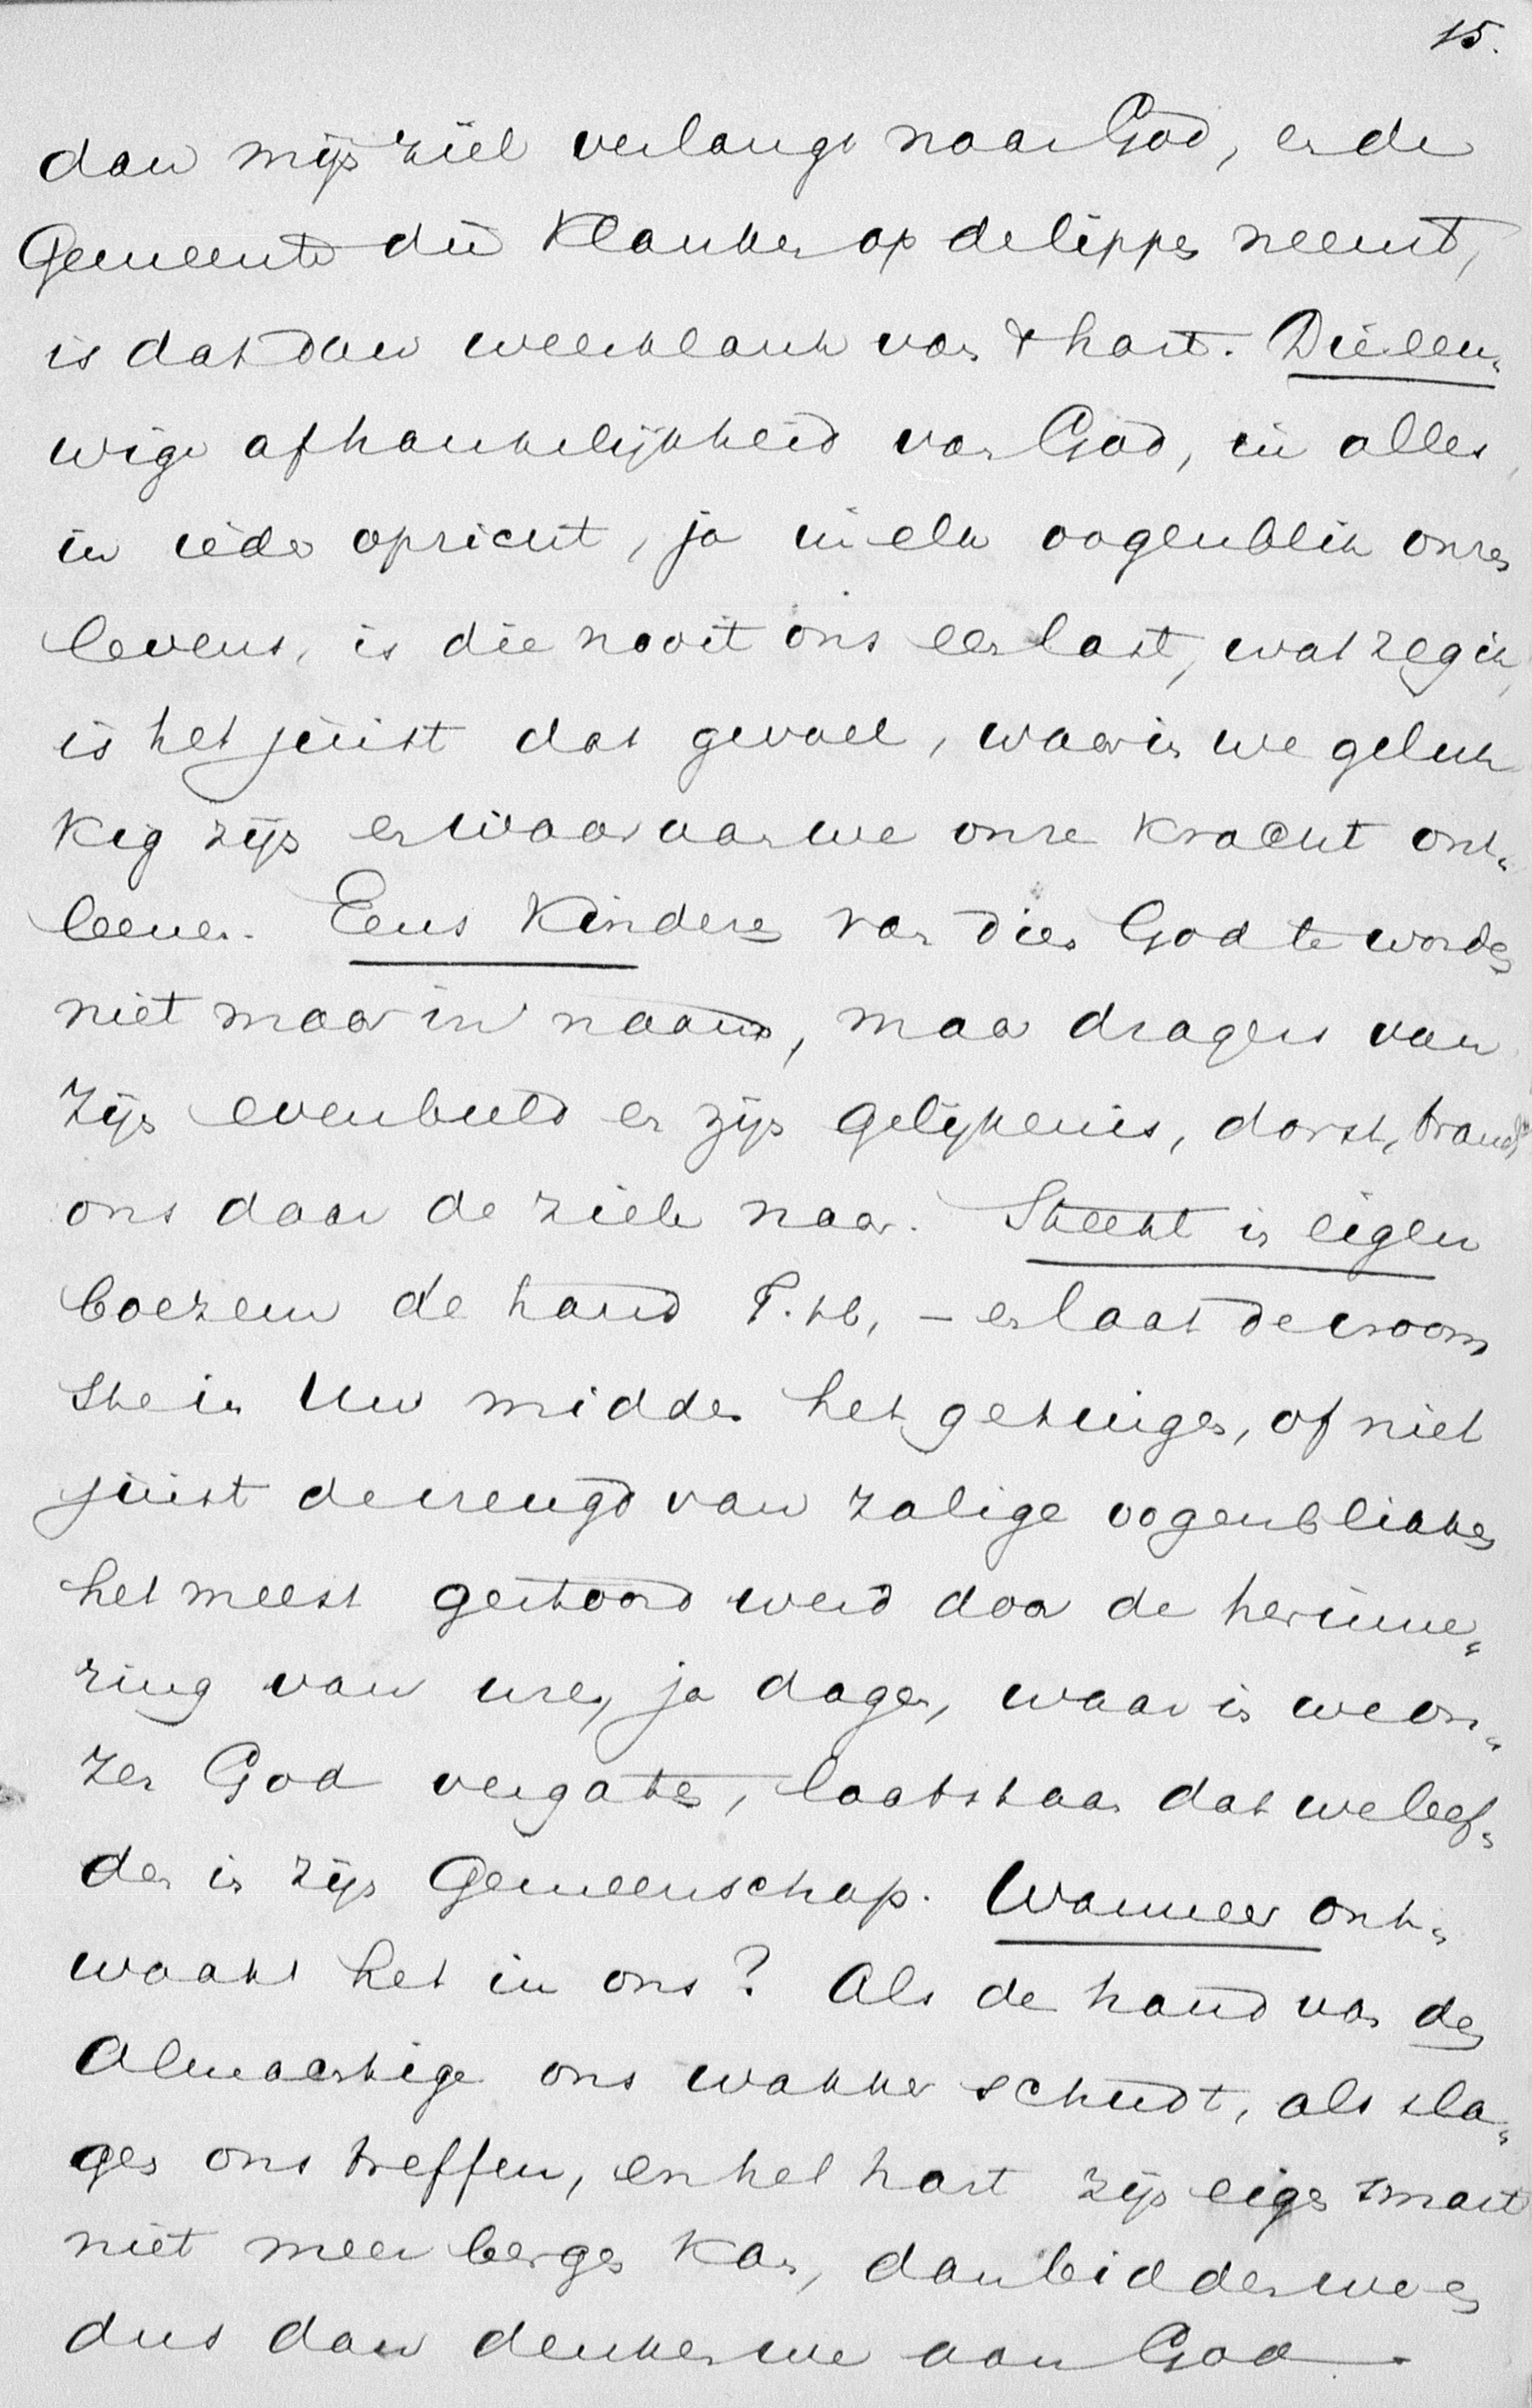 15.
dan mijn ziel verlangt naar God, en de
Gemeente die klanken op de lippen neemt,
is dat dan weerklank van 't hart. Die eeu„
wige afhankelijkheid van God, in alles,
in ieder opzicht, ja in elk oogenblik onzes
levens, is die nooit ons een last, wat zeg ik,
is het juist dat gevoel, waarin we geluk
kig zijn en waaraan we onze kracht ont„
leenen. Eens kinderen van dien God te worden
niet maar in naam, maar dragers van
zijn evenbeeld en zijn gelijkenis, dorst, brandt
ons daar de ziele naar. Steekt in eigen
boezem de hand G. tb, – en laat de vroom
ste in Uw midden het getuigen, of niet
juist de vreugd van zalige oogenblikken
het meest gestoord werd door de herinne„
ring van uren, ja dagen, waarin we on„
zen God vergaten, laat staan dat we leef„
den in zijn Gemeenschap. Wanneer ont„
waakt het in ons? Als de hand van den
Almachtige ons wakker schudt, als sla„
gen ons treffen, en het hart zijn eigen smart
niet meer bergen kan, dan bidden we en
dus dan denken we aan God.